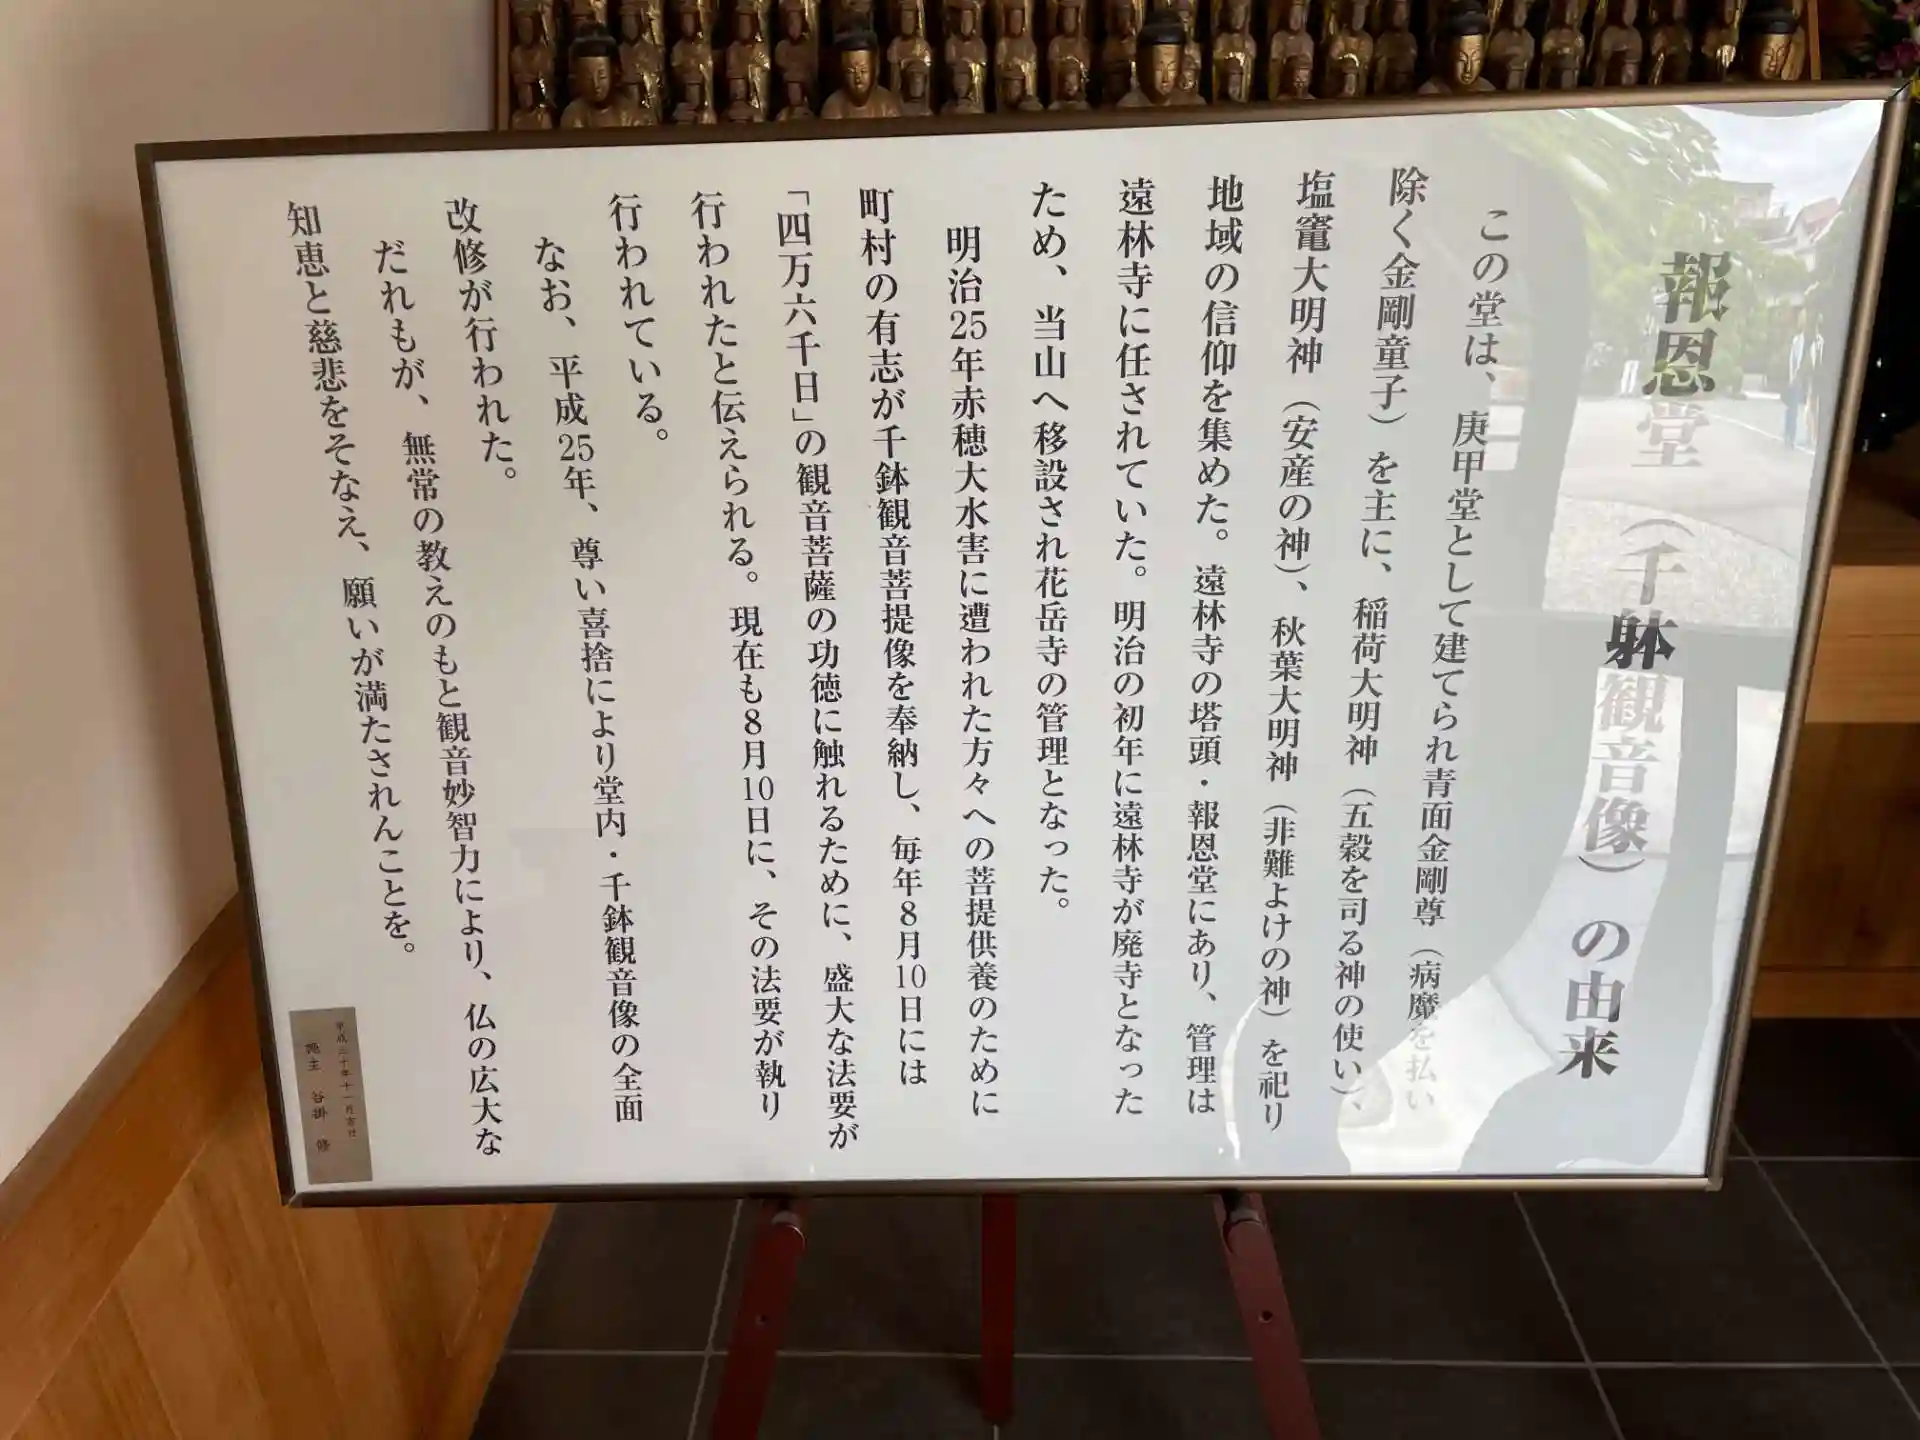 報恩堂（千躰観音像）の由来
この堂は、庚甲堂として建てられ青面金剛尊（病魔を払い
除く金剛童子）を主に、稲荷大明神（五穀を司る神の使い）、
塩竃大明神（安産の神）、秋葉大明神（非難よけの神）を祀り
地域の信仰を集めた。遠林寺の塔頭・報恩堂にあり、管理は
遠林寺に任されていた。明治の初年に遠林寺が廃寺となった
ため、当山へ移設され花岳寺の管理となった。
明治25年赤穂大水害に遭われた方々への菩提供養のために
町村の有志が千鉢観音菩提像を奉納し、毎年8月10日には
「四万六千日」の観音菩薩の功徳に触れるために、盛大な法要が
行われたと伝えられる。現在も8月10日に、その法要が執り
行われている。
なお、平成25年、尊い喜捨により堂内・千鉢観音像の全面
改修が行われた。
だれもが、無常の教えのもと観音妙智力により、仏の広大な
知恵と慈悲をそなえ、願いが満たされんことを。
平成三十年十一月吉日
施主 谷掛 修